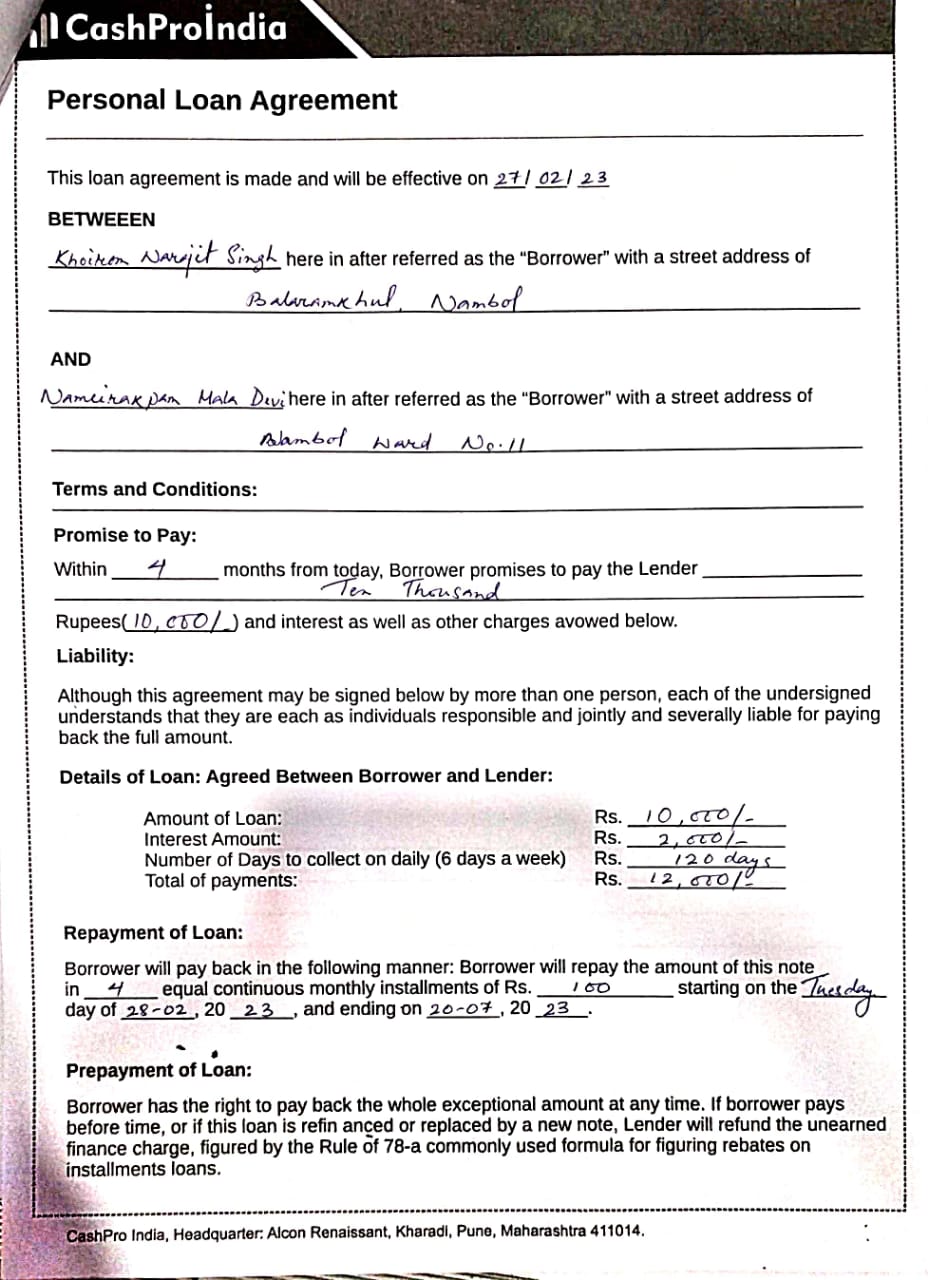 CashProIndia
Personal Loan Agreement
This loan agreement is made and will be effective on 27/ 02/ 23
BETWEEEN
Khoirom Narojit Singh here in after referred as the “Borrower” with a street address of
Balaramkhul, Nambol
AND
Nameirakpam Mala Devi here in after referred as the “Borrower” with a street address of
Nambol Ward No.11
Terms and Conditions:
Promise to Pay:
Within 4 months from today, Borrower promises to pay the Lender
Ten Thousand
Rupees( 10,000/- ) and interest as well as other charges avowed below.
Liability:
Although this agreement may be signed below by more than one person, each of the undersigned
understands that they are each as individuals responsible and jointly and severally liable for paying
back the full amount.
Details of Loan: Agreed Between Borrower and Lender:
Amount of Loan: Rs. 10,000/-
Interest Amount: Rs. 2,000/-
Number of Days to collect on daily (6 days a week) Rs. 120 days
Total of payments: Rs. 12,000/-
Repayment of Loan:
Borrower will pay back in the following manner: Borrower will repay the amount of this note
in 4 equal continuous monthly installments of Rs. 100 starting on the Tuesday
day of 28-02, 20 23, and ending on 20-07, 20 23.
Prepayment of Loan:
Borrower has the right to pay back the whole exceptional amount at any time. If borrower pays
before time, or if this loan is refin anced or replaced by a new note, Lender will refund the unearned
finance charge, figured by the Rule of 78-a commonly used formula for figuring rebates on
installments loans.
CashPro India, Headquarter: Alcon Renaissant, Kharadi, Pune, Maharashtra 411014.